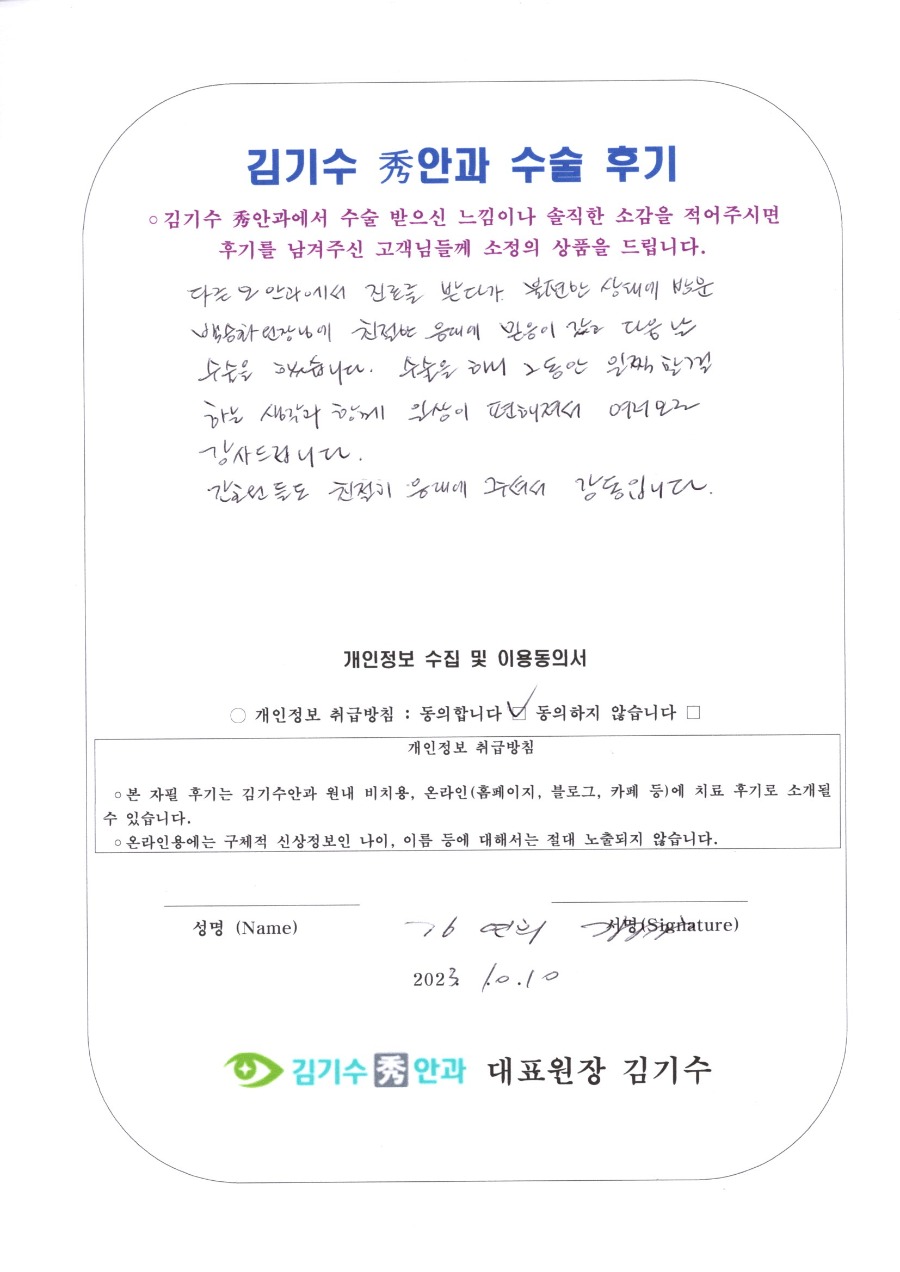 김기수 秀안과 수술 후기
○ 김기수 秀안과에서 수술 받으신 느낌이나 솔직한 소감을 적어주시면
후기를 남겨주신 고객님들께 소정의 상품을 드립니다.
다른 모 안과에서 진료를 받다가 불편한 상태에 방문
원장님에 친절한 응대에 믿음이 갔고 다음 날
수술을 했습니다. 수술을 하니 그동안 일찍 할걸
하는 생각과 함께 일상이 편해져서 여러모로
감사드립니다.
간호선들도 친절히 응대에 주셔서 감동입니다.
개인정보 수집 및 이용동의서
○ 개인정보 취급방침 : 동의합니다 ☑ 동의하지 않습니다 □
개인정보 취급방침
○ 본 자필 후기는 김기수안과 원내 비치용, 온라인(홈페이지, 블로그, 카페 등)에 치료 후기로 소개될
수 있습니다.
○ 온라인용에는 구체적 신상정보인 나이, 이름 등에 대해서는 절대 노출되지 않습니다.
성명 (Name) 연희 서명(Signature)
2023. 10.10
김기수 秀 안과 대표원장 김기수